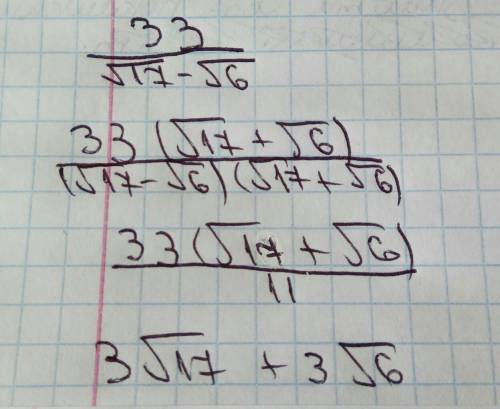 33
√17 - √6
33 (√17 + √6)
(√17 - √6) (√17 + √6)
33 (√17 + √6)
11
3√17 + 3√6